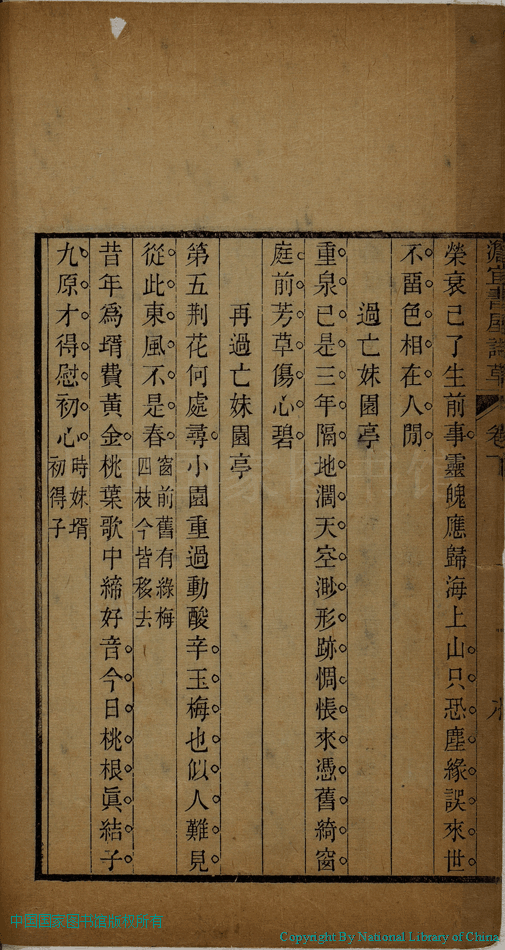 澹宜書屋詩草 卷下
榮衰已了生前事靈魄應歸海上山只恐塵緣誤來世
不畱色相在人閒
過亡妹園亭
重泉已是三年隔地濶天空渺形跡惆悵來憑舊綺窗
庭前芳草傷心碧
再過亡妹園亭
第五荆花何處尋小園重過動酸辛玉梅也似人難見
從此東風不是春窗前舊有綠梅四枝今皆移去
昔年爲壻費黃金桃葉歌中締好音今日桃根眞結子
九原才得慰初心時妹壻初得子
中国国家图书馆版权所有
Copyright By National Library of China